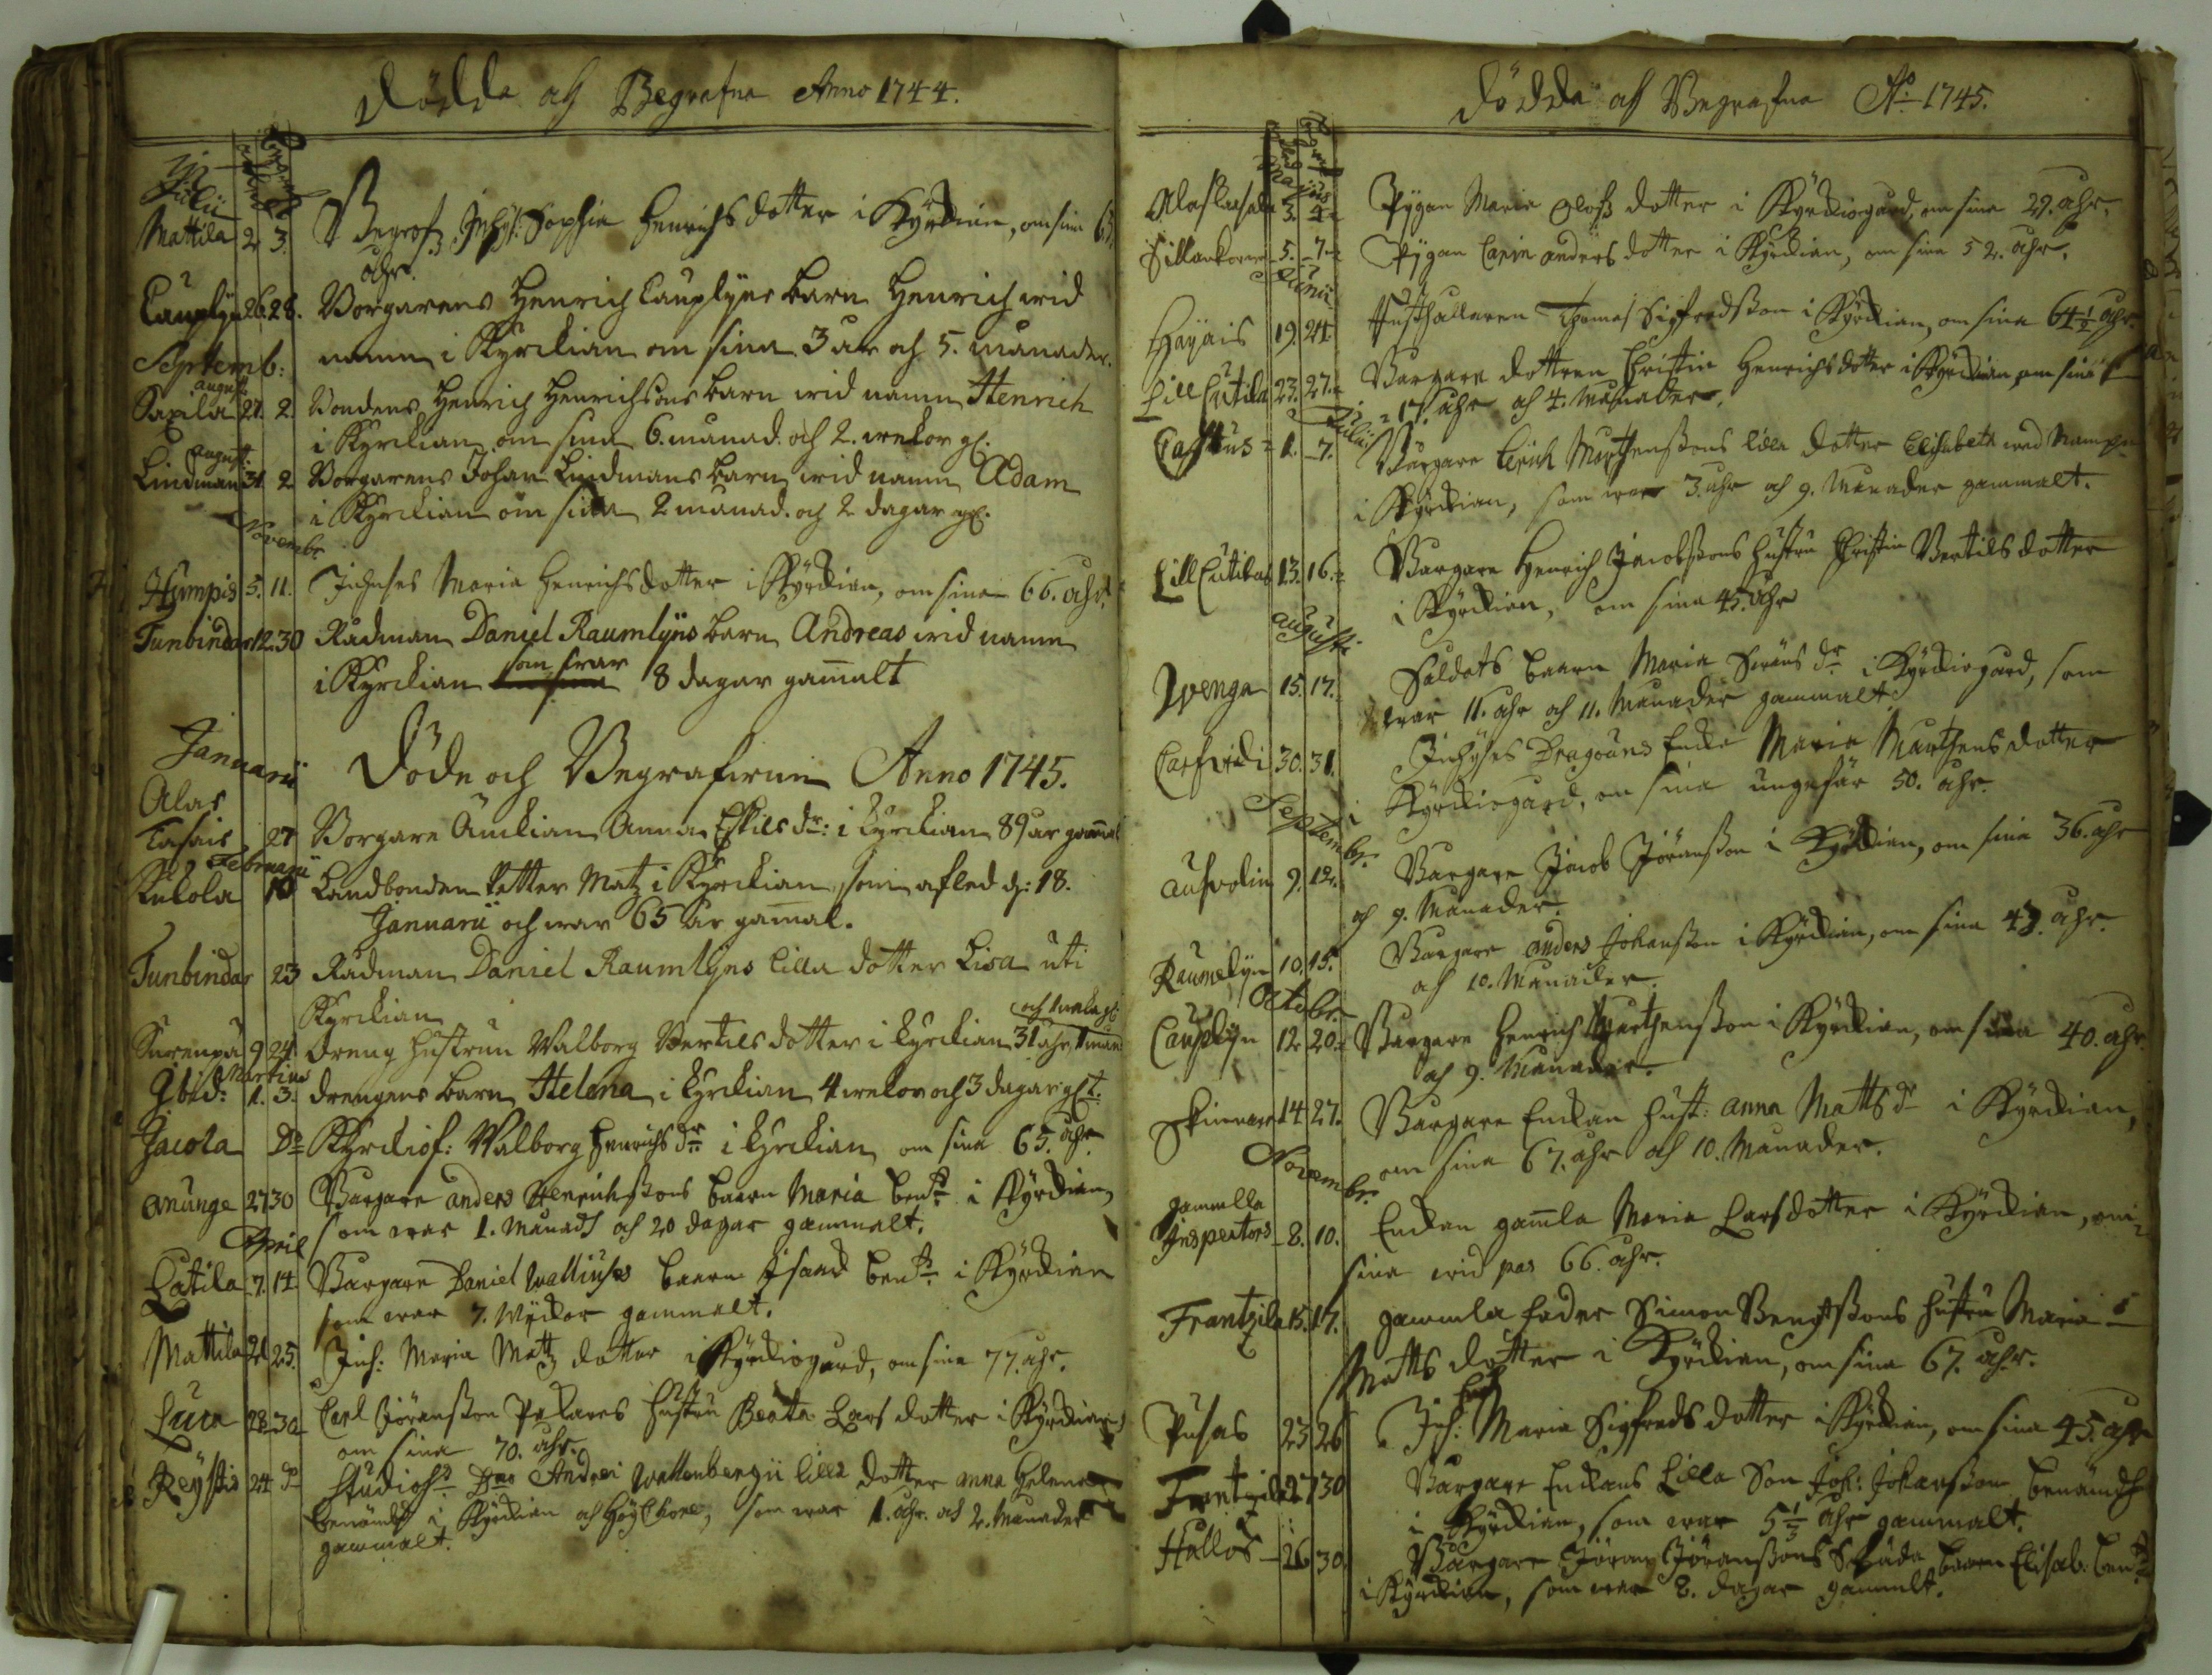 Dödde och Begrafne Anno 1744.
Julii
Mattila 2 3. Begrofs Inhys: Sophia Henrichs dotter i Kyrckian, om sina 63
åhr.
Cauplyn 26. 28. Borgarens Henrich Cauplyns barn Henrich wid
namn i Kyrckian om sina 3 år och 5. månader.
Septemb:
August
Saxila 27. 2. Bondens Henrich Henrichsons barn wid namn Henrich
i Kyrckian om sina 6. månad. och 2. wekor gl.
August.
Lindman 31 2 Borgarens Johan Lindmans barn wid namn Adam
i Kyrckian om sina 2 månad. och 2 dagar gl.
Novembr.
Humpis 5. 11. Inhyses Maria Henrichsdotter i Kyrckian, om sina 66. åhr.
Tunbindar 12 30 Rådman Daniel Raumlyns barn Andreas wid namn
i Kyrckian som war 8 dagar gamalt
Januarii
Döde och Begrafwne Anno 1745.
Alas
Kasais 27 Borgare Änckian Anna Eskils dr: i kyrckian 89 år gamal
Februarii
Kukola 10 Landbonden Petter Matz i Kyrckian, som afled d: 18.
Januarii och war 65 år gamal.
Tunbindar 23 Rådman Daniel Raumlyns lilla dotter Lisa uti
Kyrckian
och 1 weka gl:
Surenpä 9 24 Dreng hustrun Walborg Bertils dotter i kyrckian 31 åhr, 1 mån
Martius
Ibid: 1. 3. drengens barn Helena i kyrckian 4 wekor och 3 dagar glt.
Jacola Do Kyrckiof: Walborg Henrichs dr i kyrckian om sina 65. åhr.
Anunge 27 30 Bårgare Anders Henrichssons baarn Maria bend i Kyrckian,
som war 1. Månadh och 20 dagar gammalt.
April
Catila 7. 14. Bårgare Daniel Walliuses baarn Isaac bend i Kyrckian
som war 7. Wyckor gammalt.
Mattila 21 25. Inh: Maria Matz dotter i Kyrckiogård, om sina 77. åhr.
Luca 28 30 Carl Jöransson Pelares hustru Beata Lars dotter i Kyrckian,
om sina 70. åhr.
Reystis 24 do Studios. Dns Andrei Wallenbergii lilla dotter Anna Helena
benämdh i Kyrckian och Höghchore, som war 1. åhr. och 2. Månader
gammalt.
Dödde och Begrafne Ao 1745.
Majus
Alaskasala 3. 4. Pygan Maria Olofs dotter i Kyrckiogård, om sina 29. åhr.
Sillankorva 5. 7. Pygan Carin Anders dotter i Kyrckian, om sina 52. åhr.
Junii
Hajais 19. 24. Husthållaren Thomas Sigfredsson i Kyrckian, om sina 64 1/2 åhr.
Lill Cutila 23. 27. Bårgare dotteren Christin Henrichsdotter i Kyrckian, om sina
17. åhr och 4. Månader.
Julii
Castus 1. 7. Bårgare Erich Marthenssons lilla dotter Elisabeta wed Nampn
i Kyrckian, som war 3. åhr och 9. Månader gammalt.
Lill Cutilas 13. 16. Bårgare Henrich Jacobssons hustru Christin Bertils dotter
i Kyrckian, om sina 45. åhr
Augusti
Wenga 15. 17. Saldats baarn Maria Swäns dr i Kyrckiogård, som
war 11. åhr och 11. Månader gammalt.
Carfwidi 30. 31. Inhyses Dragouns Encka Maria Marthens dotter
i Kyrckiogård, om sina ungefär 50. åhr.
Septembr.
Aufwolin 9. 12. Bårgare Jacob Jöransson i Kyrckian, om sina 36. åhr
och 9. Månader.
Raumelyn 10. 15. Bårgare Anders Johansson i Kyrckian, om sina 43. åhr.
och 10. Månader.
Octobr.
Cauplyn 12 20. Bårgare Henrich Marthensson i Kyrckian, om sina 40. åhr.
och 9. Månader.
Skinnare 14 27. Bårgare Enckan hust: Anna Matts dr i Kyrckian,
om sina 67. åhr och 10. Månader.
Novembr.
gammella
Inspectors 8. 10. Enckan gamla Maria Larsdotter i Kyrckian, om
sina wid pas 66. åhr.
Frantzila 15. 17. Gammla fader Simon Bengtssons hustru Maria
Matts dotter i Kyrckian, om sina 67. åhr.
Pusas 23 26 Inh: Maria Sigfreds dotter i Kyrckian, om sina 45. åhr
Frantzila 27 30 Bårgare Enckans Lilla Son Joh: Johansson benämdh
i Kyrckian, som war 5 1/2 åhr gammalt.
Hullos 26 30. Bårgare Jöran Jöranssons baarn Elisab. bend
i Kyrckian, som war 8. dagar gammlt.